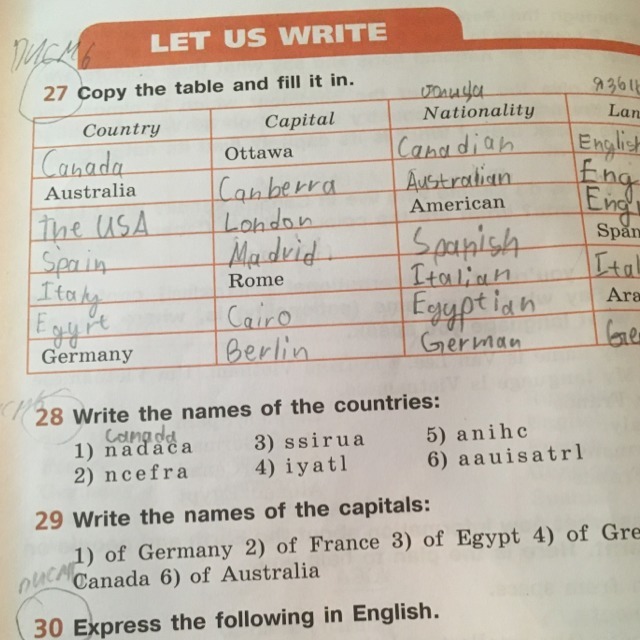 LET US WRITE
27 Copy the table and fill it in.
Country Capital Nationality Lan
Canada Ottawa Canadian English
Australia Canberra Australian Eng
The USA London American Eng
Spain Madrid. Spanish Span
Italy Rome Italian Ital
Egyrt Cairo Egyptian Ara
Germany Berlin German Ger
28 Write the names of the countries:
Canada
1) nadaca 3) ssirua 5) anihc
2) ncefra 4) iyatl 6) aauisatrl
29 Write the names of the capitals:
1) of Germany 2) of France 3) of Egypt 4) of Gre
Canada 6) of Australia
30 Express the following in English.